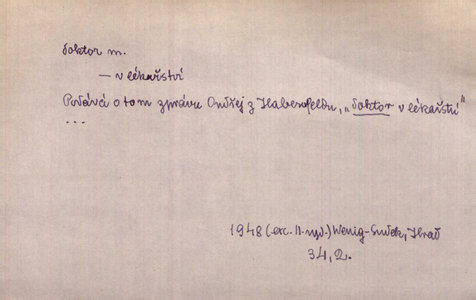 doktor m.
— v lékařství
Podává o tom zprávu Ondřej z Habersfeldu, „doktor v lékařství"
...
1948 (exc. II. vyd.) Wenig-Snížek, Hrad
34, 2.